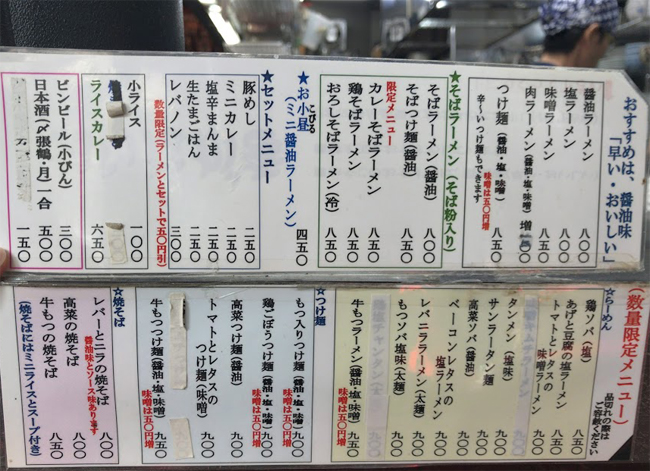 おすすめは、醤油味
「早い・おいしい」
醤油ラーメン 八〇〇
塩ラーメン 八〇〇
味噌ラーメン 八五〇
肉ラーメン(醤油・塩・味噌) 増
つけ麺(醤油・塩・味噌) 八五〇
味噌は五〇円増
辛〜いつけ麺もできます
★そばラーメン(そば粉入り)
そばラーメン(醤油) 八〇〇
そばつけ麺(醤油) 八五〇
限定メニュー
カレーそばラーメン 八五〇
鶏そばラーメン 八五〇
おろしそばラーメン(冷) 八五〇
★お小昼(ミニ醤油ラーメン) 四五〇
こびる
★セットメニュー
豚めし 二五〇
ミニカレー 二五〇
塩辛まんま 二五〇
生たまごはん 二五〇
レバノン 三〇〇
数量限定(ラーメンとセットで五〇円引)
小ライス 一〇〇
ライスカレー 六五〇
ビンビール(小びん) 三〇〇
日本酒(〆張鶴・月)一合 五〇〇
一五〇
(数量限定メニュー)
品切れの際は
ご容赦ください
☆らーめん
鶏ソバ(塩) 八五〇
あげと豆腐の塩ラーメン 八五〇
トマトとレタスの
味噌ラーメン 九〇〇
タンメン(塩味) 九〇〇
サンラータン麺 九〇〇
ベーコンレタスの
塩ラーメン 九〇〇
高菜ソバ醤油 九〇〇
レバニララーメン(太麺) 九〇〇
もつソバ塩味(太麺) 九〇〇
牛もつラーメン(醤油・塩・味噌) 九五〇
味噌は五〇円増
☆つけ麺
もつ入りつけ麺(醤油・塩・味噌) 九〇〇
味噌は五〇円増
鶏ごぼうつけ麺(醤油・塩・味噌) 九〇〇
味噌は五〇円増
高菜つけ麺(醤油) 九〇〇
トマトとレタスの
つけ麺(味噌) 九〇〇
牛もつつけ麺(醤油・塩・味噌) 九五〇
味噌は五〇円増
☆焼そば
レバーとニラの焼そば 八〇〇
醤油味とソース味あります
高菜の焼そば 八〇〇
牛もつの焼そば 八五〇
(焼そばにはミニライスとスープ付き)